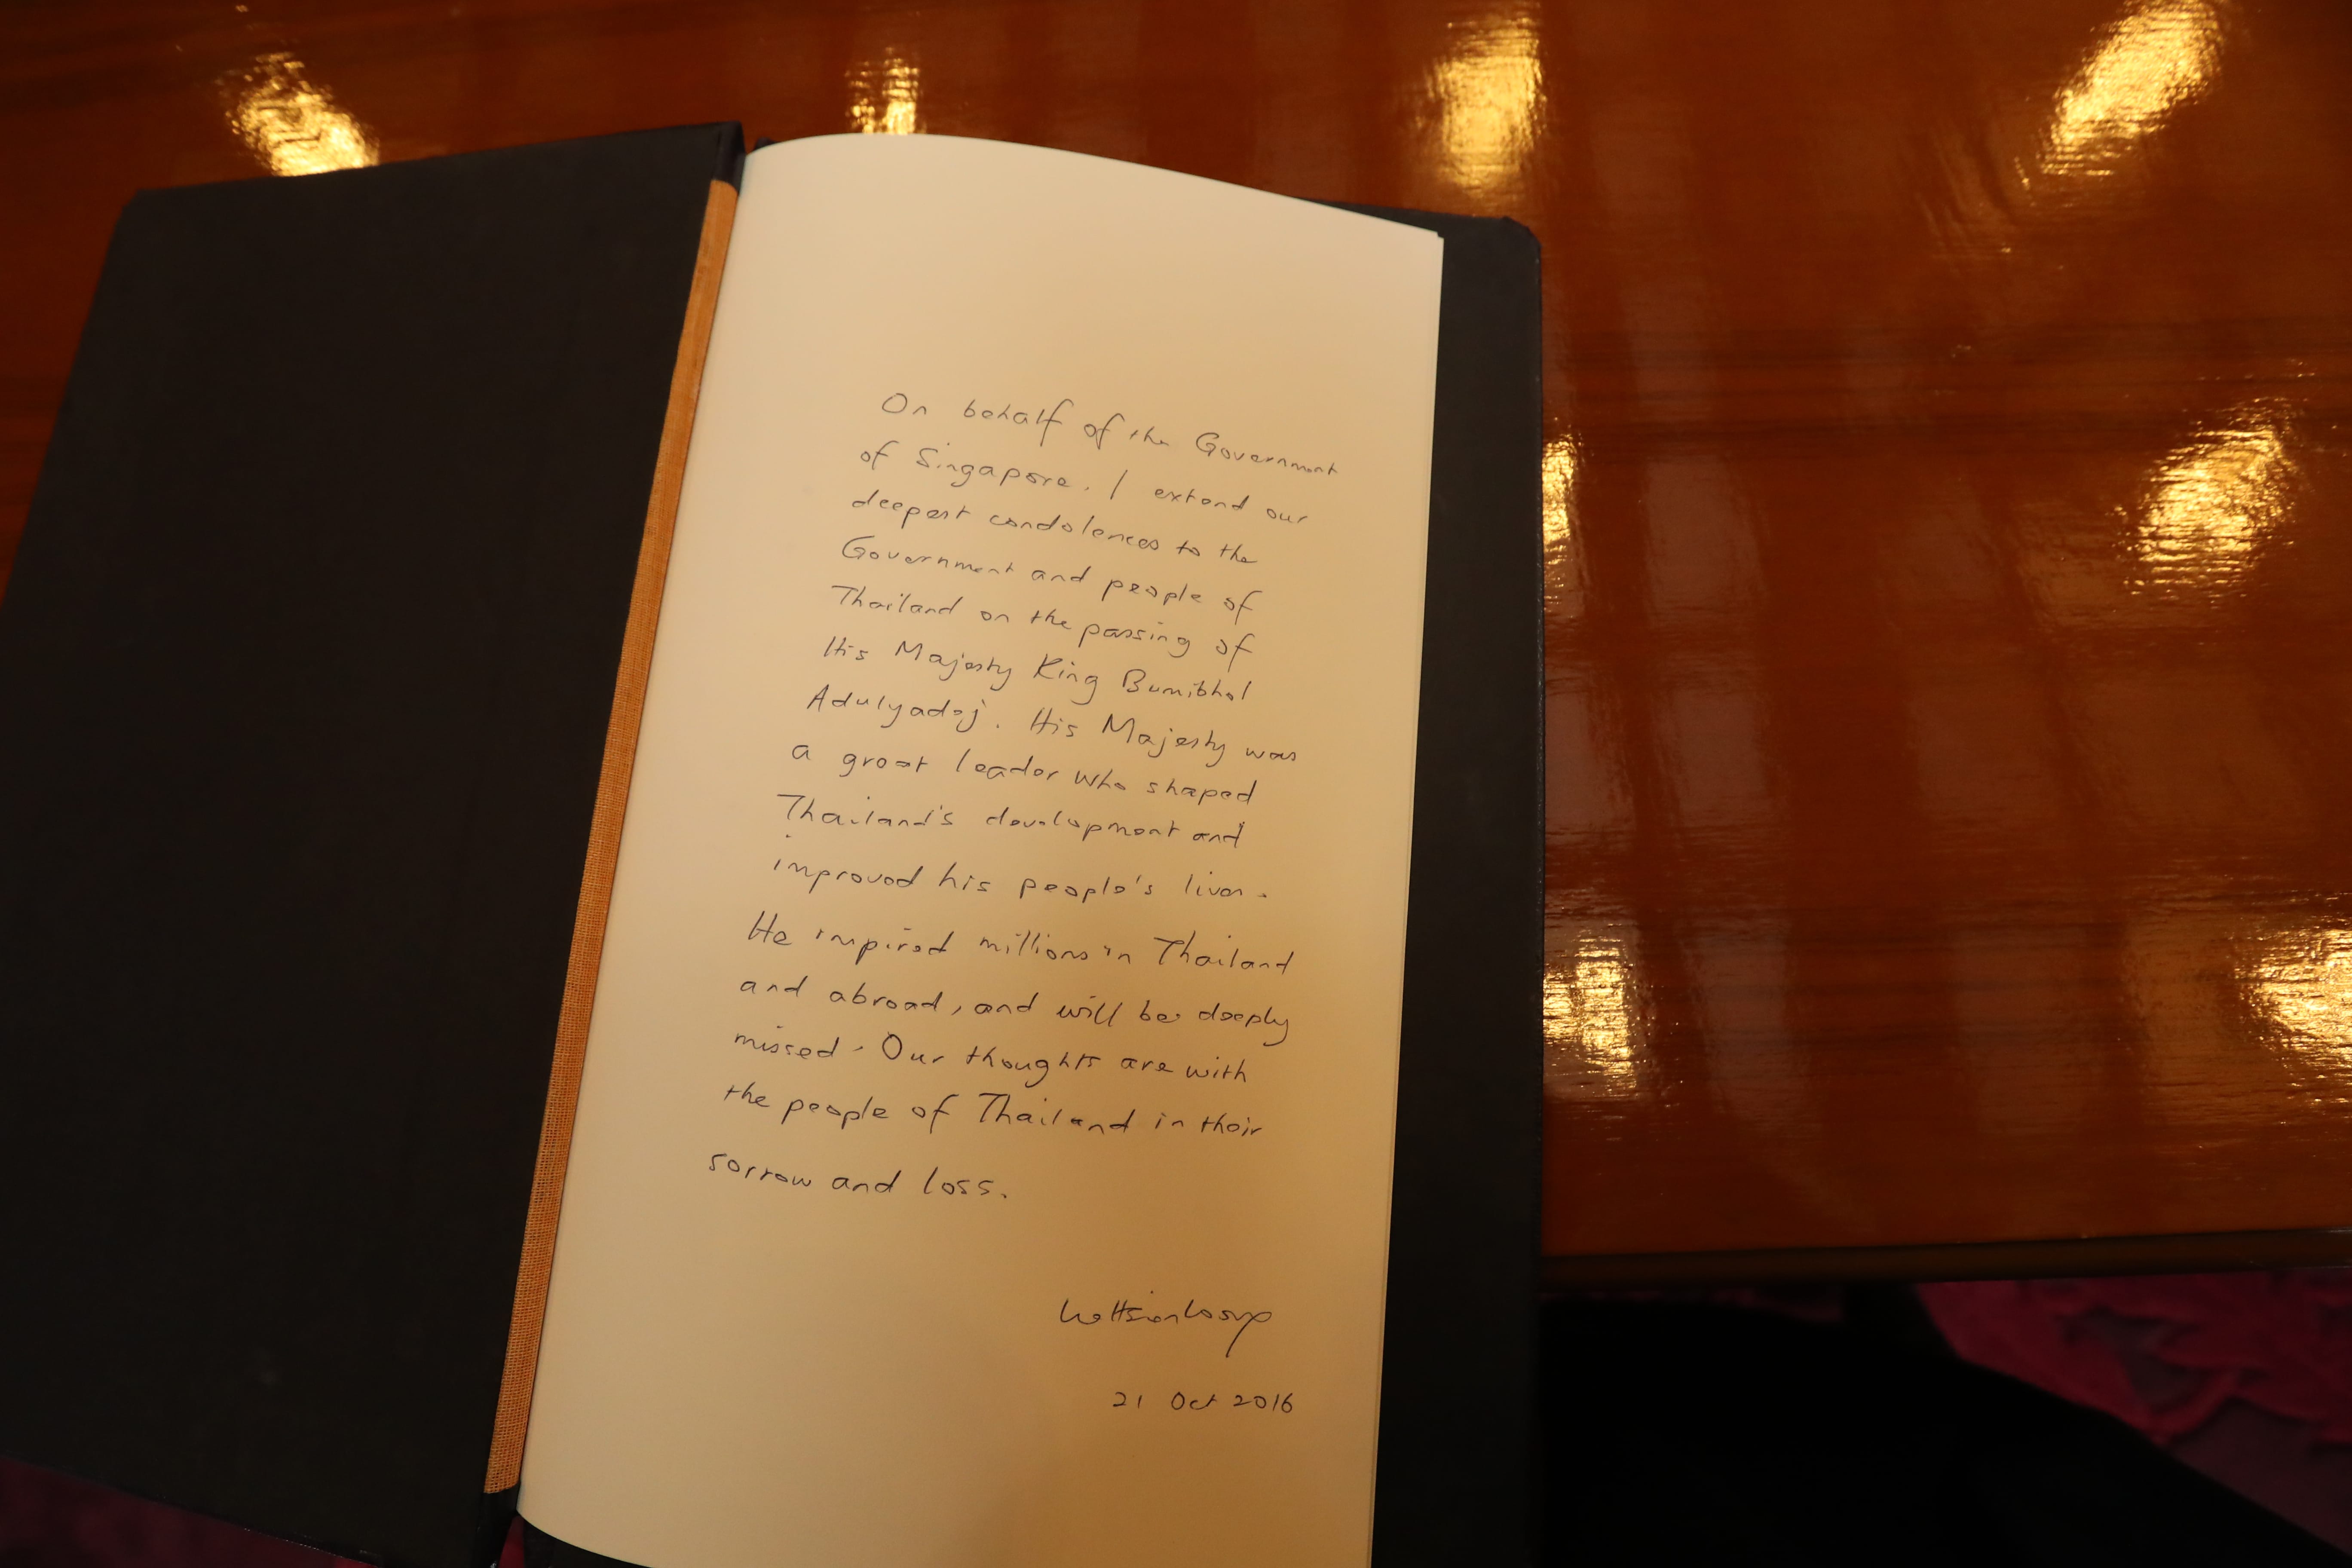 On behalf of the Government
of Singapore. I extend our
deepest condolences to the
Government and people of
Thailand on the passing of
His Majesty King Bumibhol
Adulyadej. His Majesty was
a great leader who shaped
Thailand's development and
improved his people's lives.
He inspired millions in Thailand
and abroad, and will be deeply
missed. Our thoughts are with
the people of Thailand in their
sorrow and loss.
Lee Hsien Loong
21 Oct 2016